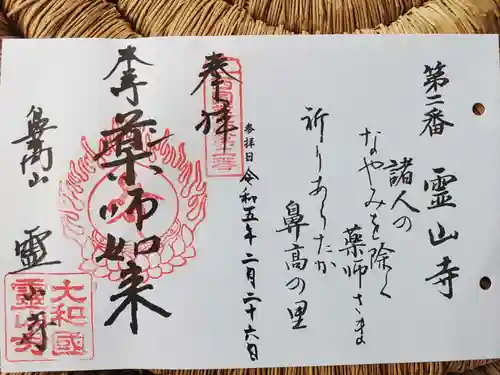 第二番 霊山寺
諸人の
なやみを除く
薬師さま
祈りあらたか
鼻高の里
参拝日 令和五年二月二十六日
奉拝
本尊 薬師如来
鼻高山 霊山寺
大和國
霊山寺